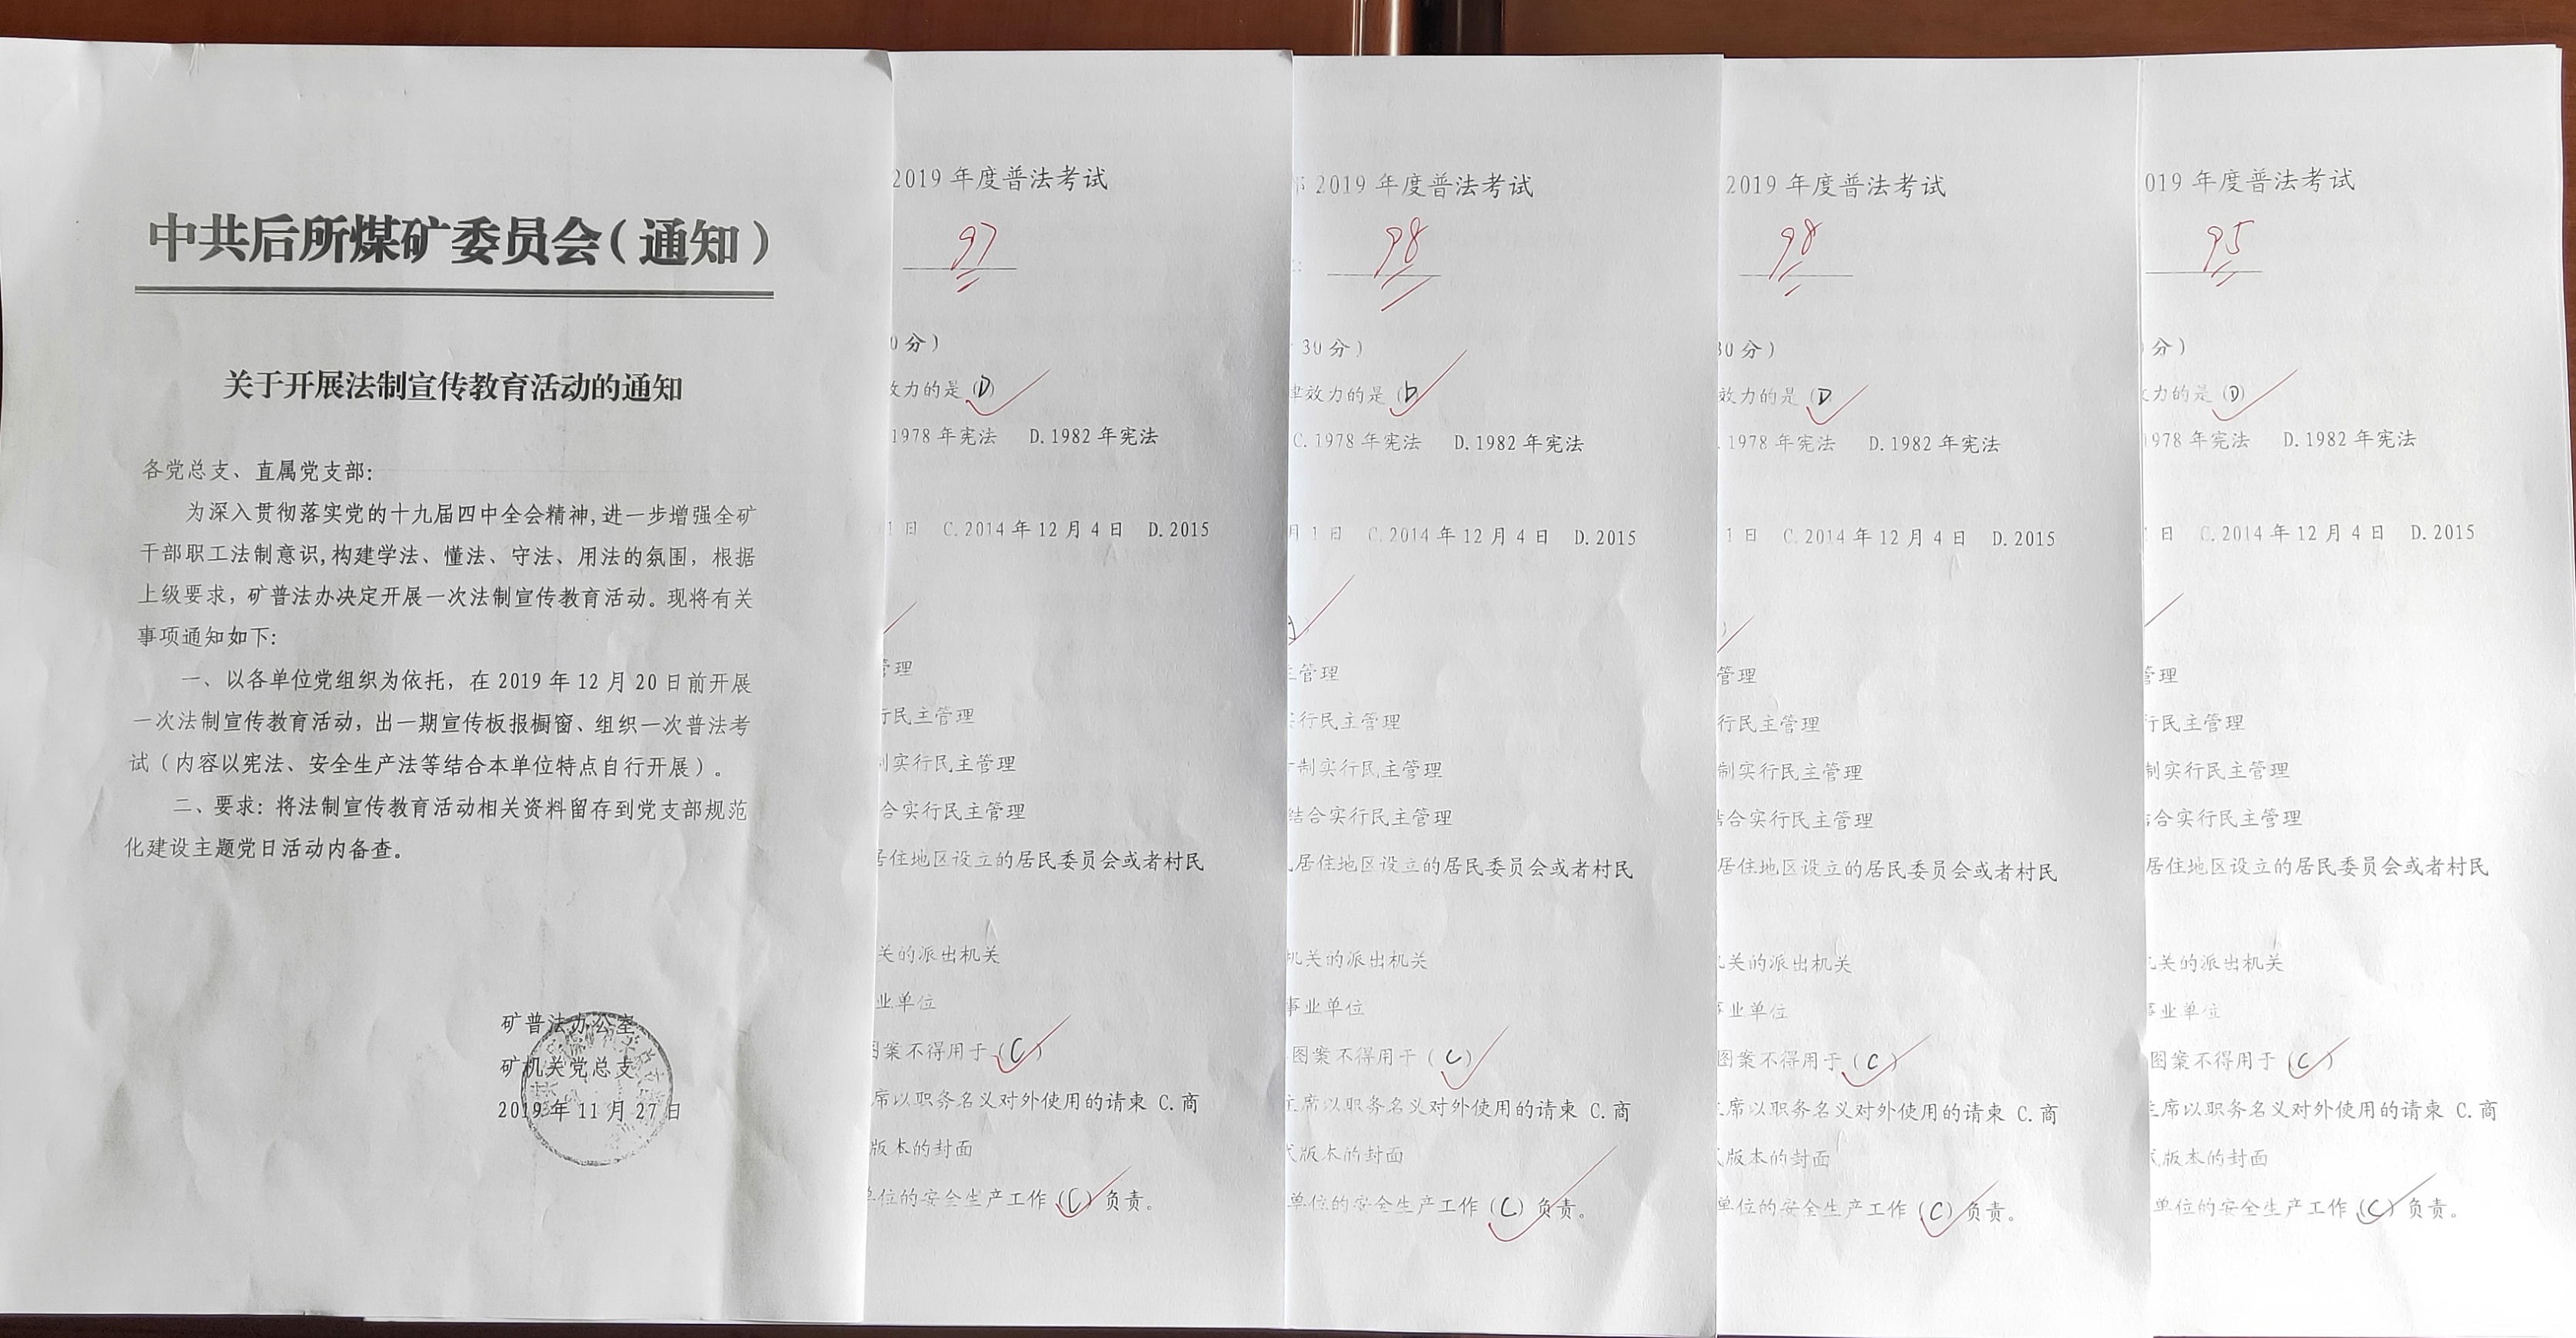 中共后所煤矿委员会(通知)
关于开展法制宣传教育活动的通知
各党总支、直属党支部:
为深入贯彻落实党的十九届四中全会精神,进一步增强全矿
干部职工法制意识,构建学法、懂法、守法、用法的氛围,根据
上级要求,矿普法办决定开展一次法制宣传教育活动。现将有关
事项通知如下:
一、以各单位党组织为依托,在2019年12月20日前开展
一次法制宣传教育活动,出一期宣传板报橱窗、组织一次普法考
试(内容以宪法、安全生产法等结合本单位特点自行开展)。
二、要求:将法制宣传教育活动相关资料留存到党支部规范
化建设主题党日活动内备查。
矿普法办公室
矿机关党总支
2019年11月27日
2019年度普法考试
97
0分)
效力的是(D)
1978年宪法 D.1982年宪法
1日 C.2014年12月4日 D.2015
管理
行民主管理
制实行民主管理
合实行民主管理
居住地区设立的居民委员会或者村民
关的派出机关
业单位
图案不得用于(C)
席以职务名义对外使用的请柬 C.商
版本的封面
单位的安全生产工作(C)负责。
部 2019年度普法考试
98
30分)
律效力的是(D)
C.1978年宪法 D.1982年宪法
月1日 C.2014年12月4日 D.2015
主管理
实行民主管理
制实行民主管理
结合实行民主管理
居住地区设立的居民委员会或者村民
机关的派出机关
事业单位
图案不得用于(C)
主席以职务名义对外使用的请柬 C.商
式版本的封面
单位的安全生产工作(C)负责。
2019年度普法考试
98
30分)
效力的是(D)
.1978年宪法 D.1982年宪法
1日 C.2014年12月4日 D.2015
)
管理
行民主管理
制实行民主管理
结合实行民主管理
居住地区设立的居民委员会或者村民
机关的派出机关
事业单位
图案不得用于(C)
主席以职务名义对外使用的请柬 C.商
式版本的封面
单位的安全生产工作(C)负责。
019年度普法考试
95
分)
效力的是(D)
1978年宪法 D.1982年宪法
日 C.2014年12月4日 D.2015
管理
行民主管理
制实行民主管理
结合实行民主管理
居住地区设立的居民委员会或者村民
机关的派出机关
事业单位
图案不得用于(C)
主席以职务名义对外使用的请柬 C.商
式版本的封面
单位的安全生产工作(C)负责。